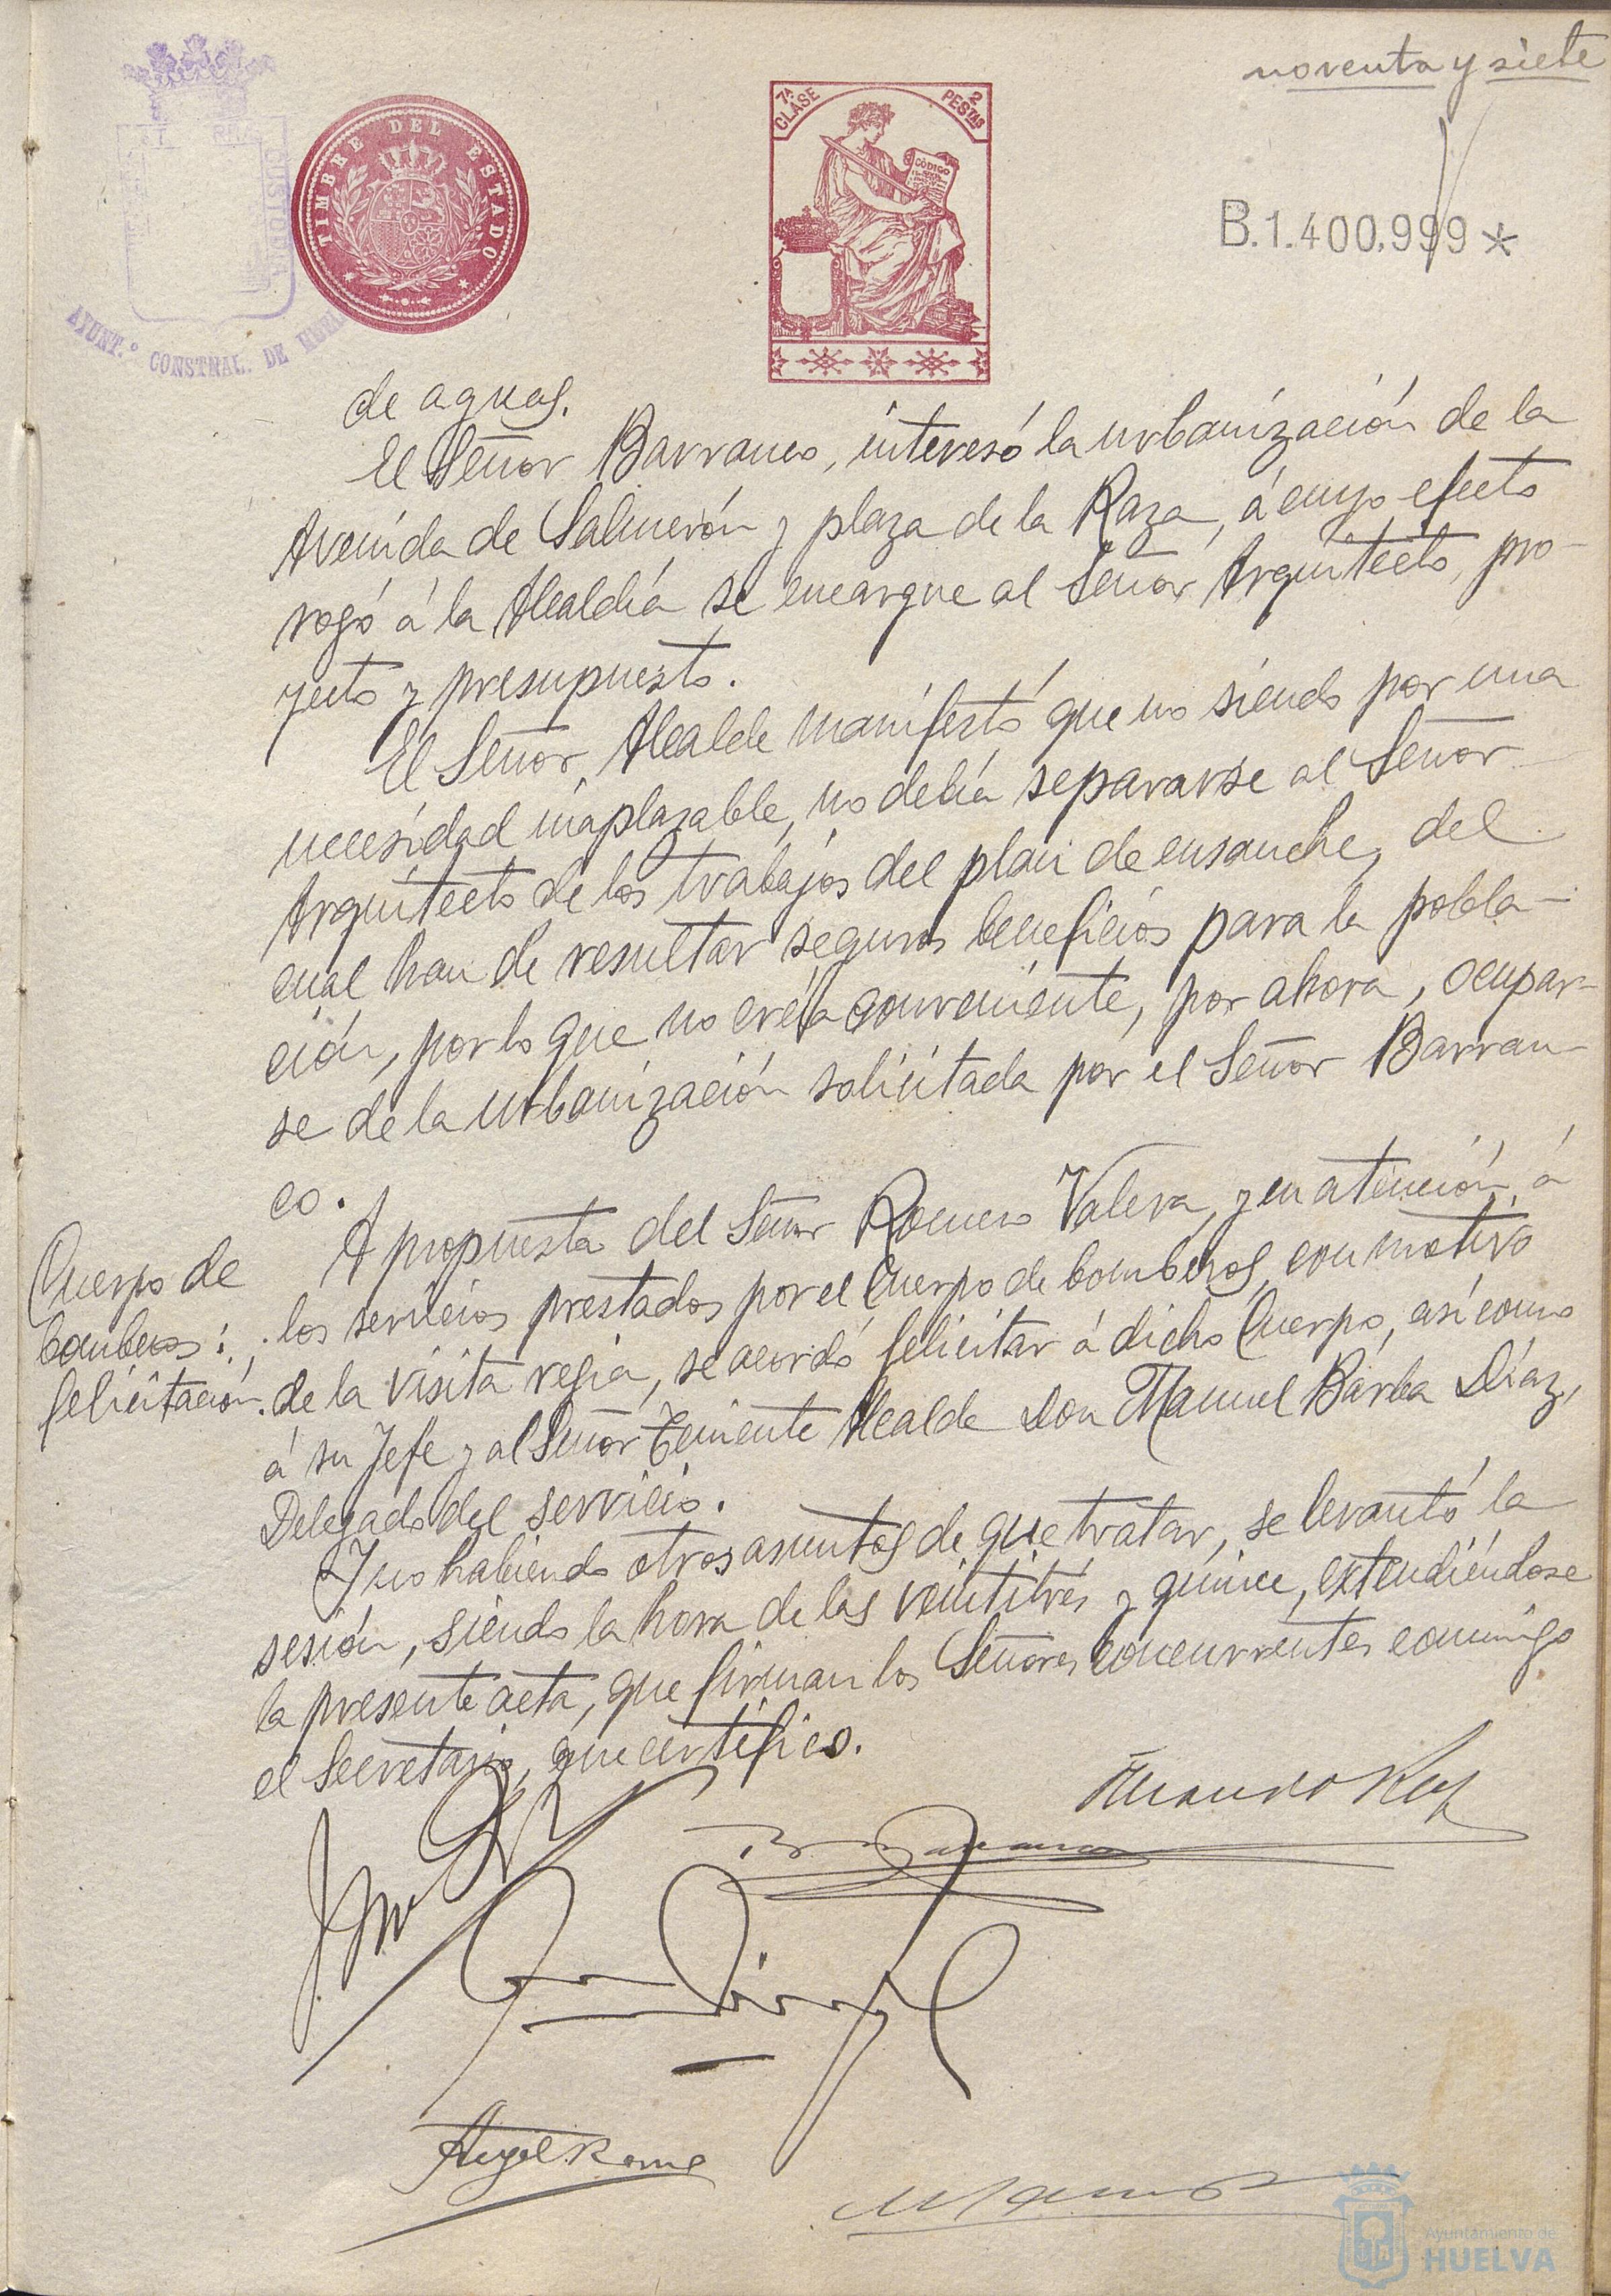 noventa y siete
7ª CLASE
2 PESTAS
TIMBRE DEL ESTADO
CÓDIGO
B.1.400.999 *
AYUNT.º CONSTNAL. DE HUEL
de aguas.
El Señor Barranco, interesó la urbanización de la
Avenida de Salmerón y plaza de la Raza, á cuyo efecto
rogó á la Alcaldía se encargue al Señor Arquitecto, pro-
yecto y presupuesto.
El Señor Alcalde manifestó que no siendo por una
necesidad inaplazable, no debía separarse al Señor
Arquitecto de los trabajos del plan de ensanche, del
cual han de resultar seguros beneficios para la pobla-
ción, por lo que no creía conveniente, por ahora, ocupar-
se de la urbanización solicitada por el Señor Barran-
co.
Cuerpo de
bomberos:
felicitación.
A propuesta del Señor Romero Valera, y en atención á
los servicios prestados por el Cuerpo de bomberos, con motivo
de la visita regia, se acordó felicitar á dicho Cuerpo, así como
á su Jefe y al Señor Teniente Alcalde Don Manuel Barba Díaz,
Delegado del servicio.
Y no habiendo otros asuntos de que tratar, se levantó la
sesión, siendo la hora de las veintitrés y quince, extendiéndose
la presente acta, que firman los Señores concurrentes conmigo
el Secretario, que certifico.
Ayuntamiento de
HUELVA